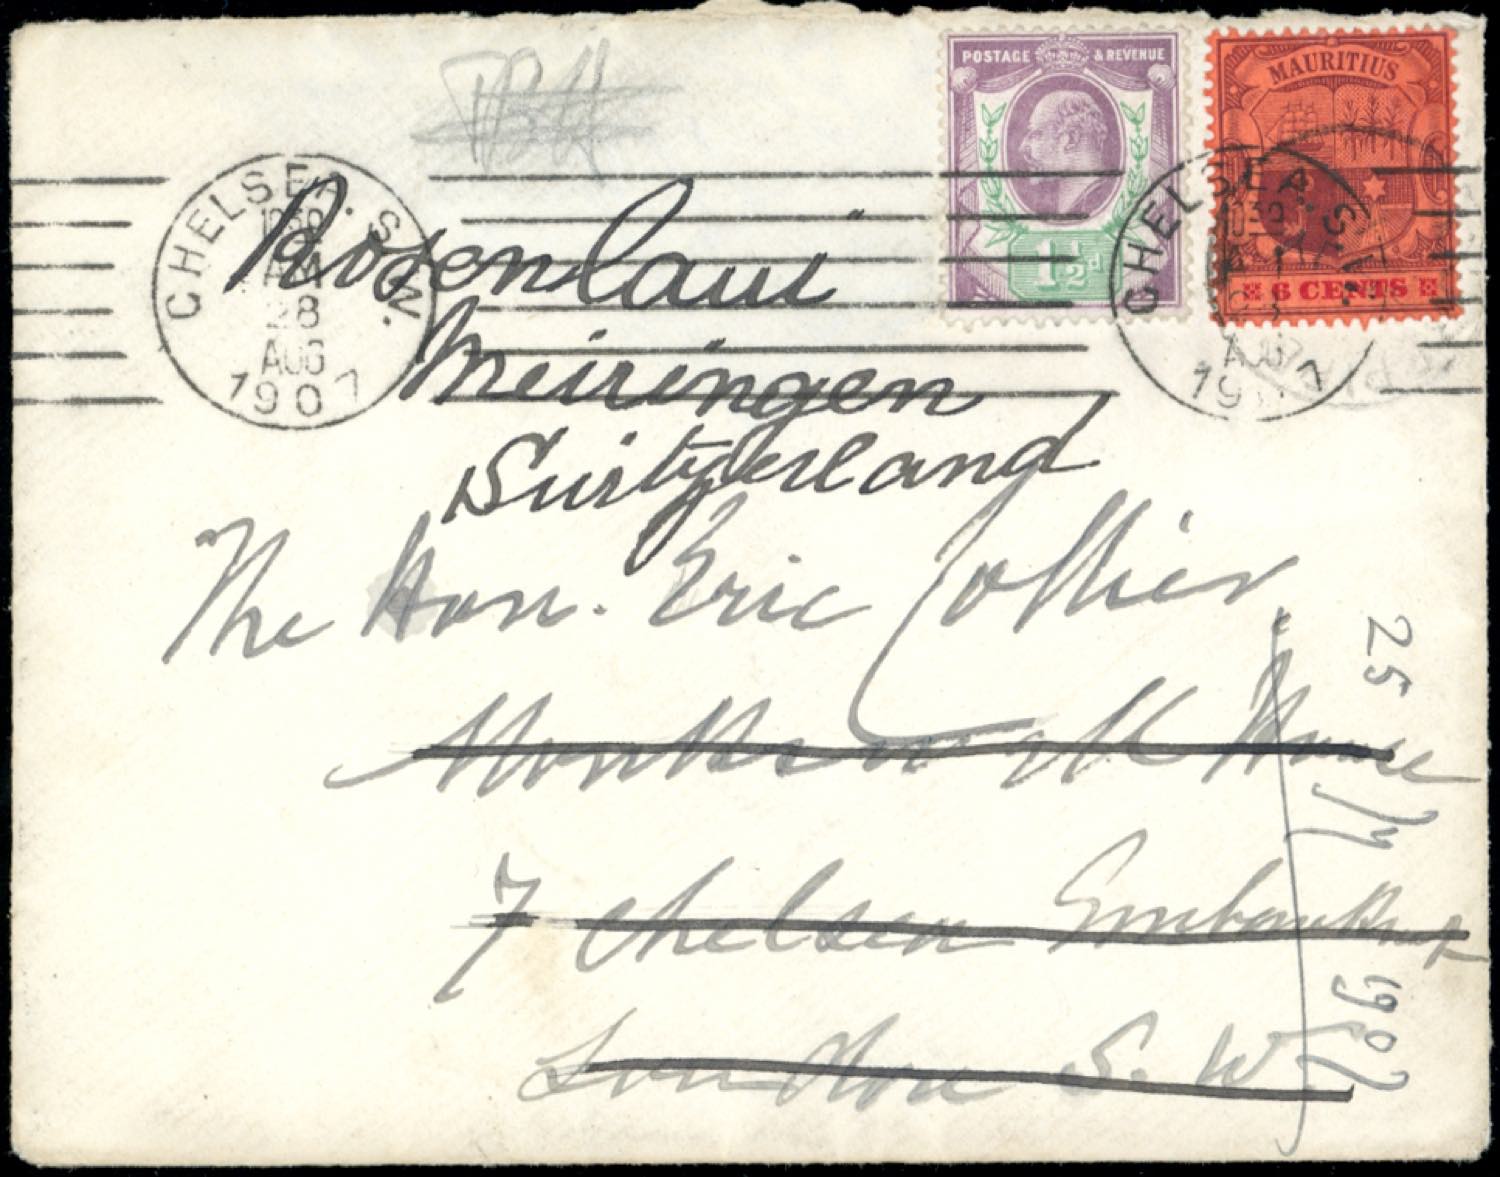 POSTAGE & REVENUE
1½d
MAURITIUS
6 CENTS
CHELSEA. S.W.
1030
AM
28
AUG
1907
CHELSEA. S.W.
1030
AM
28
AUG
1907
Rosenlaui
Meiringen
Switzerland
The Hon. Eric Collier
Monkswell House
7 Chelsea Embankment
London S. W.
25
1907